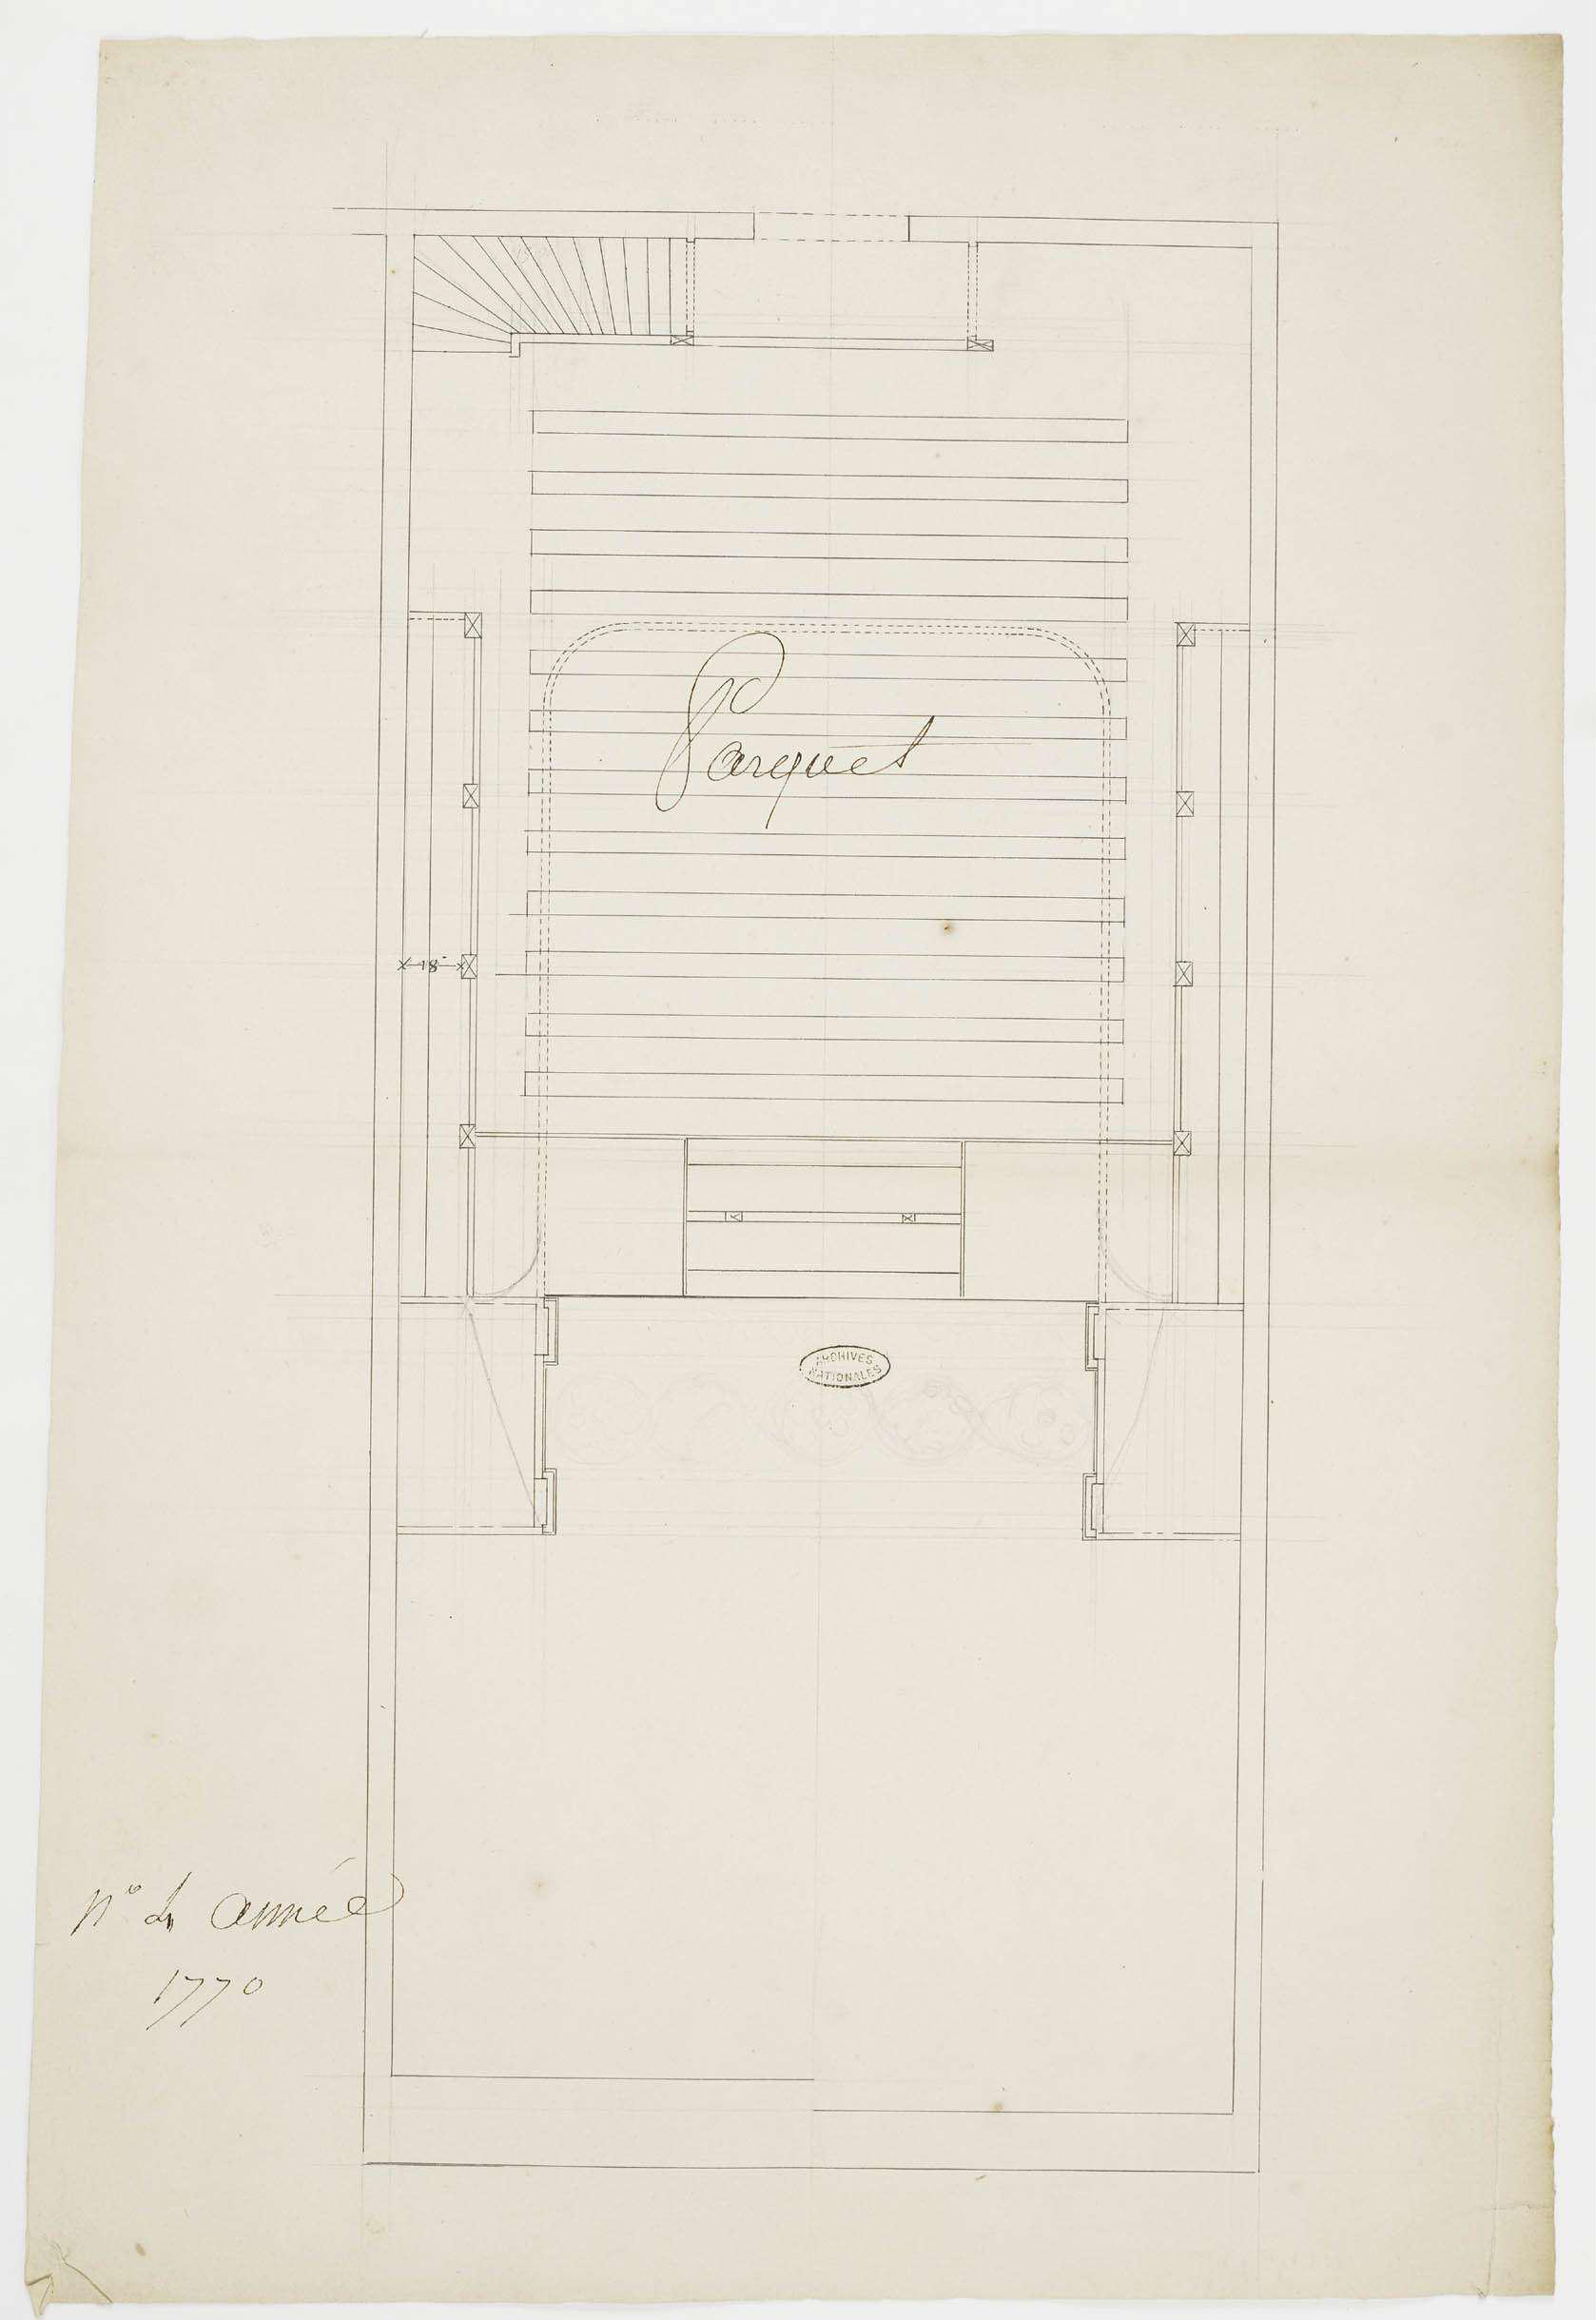 Parquet
18
ARCHIVES
NATIONALES
n° 4 année
1770